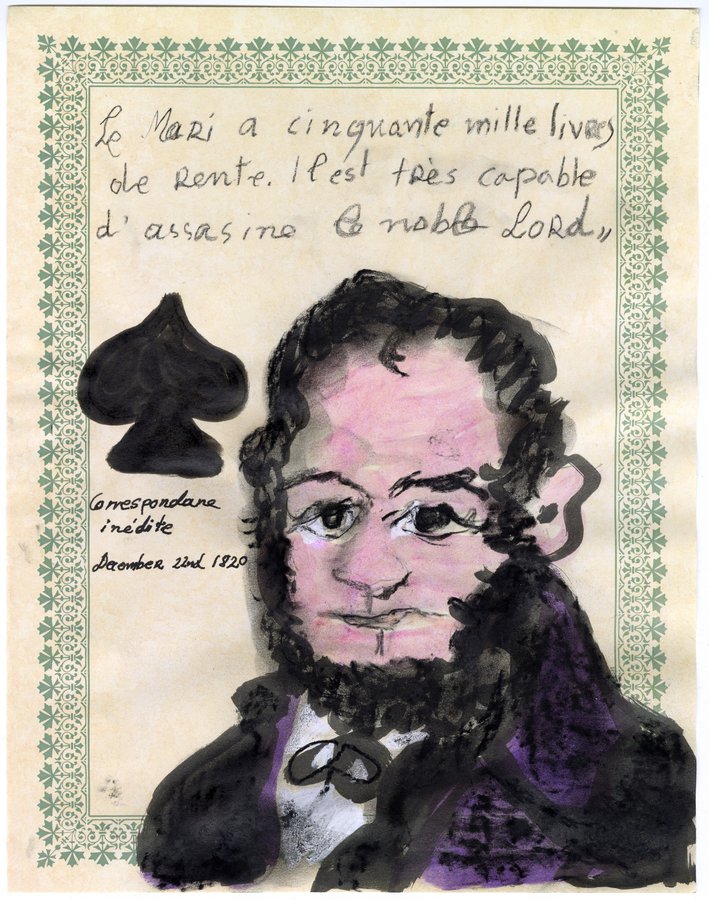 Le Mari a cinquante mille livres
de rente. Il est très capable
d'assasine le noble Lord„
Correspondance
inédite
December 22nd 1820